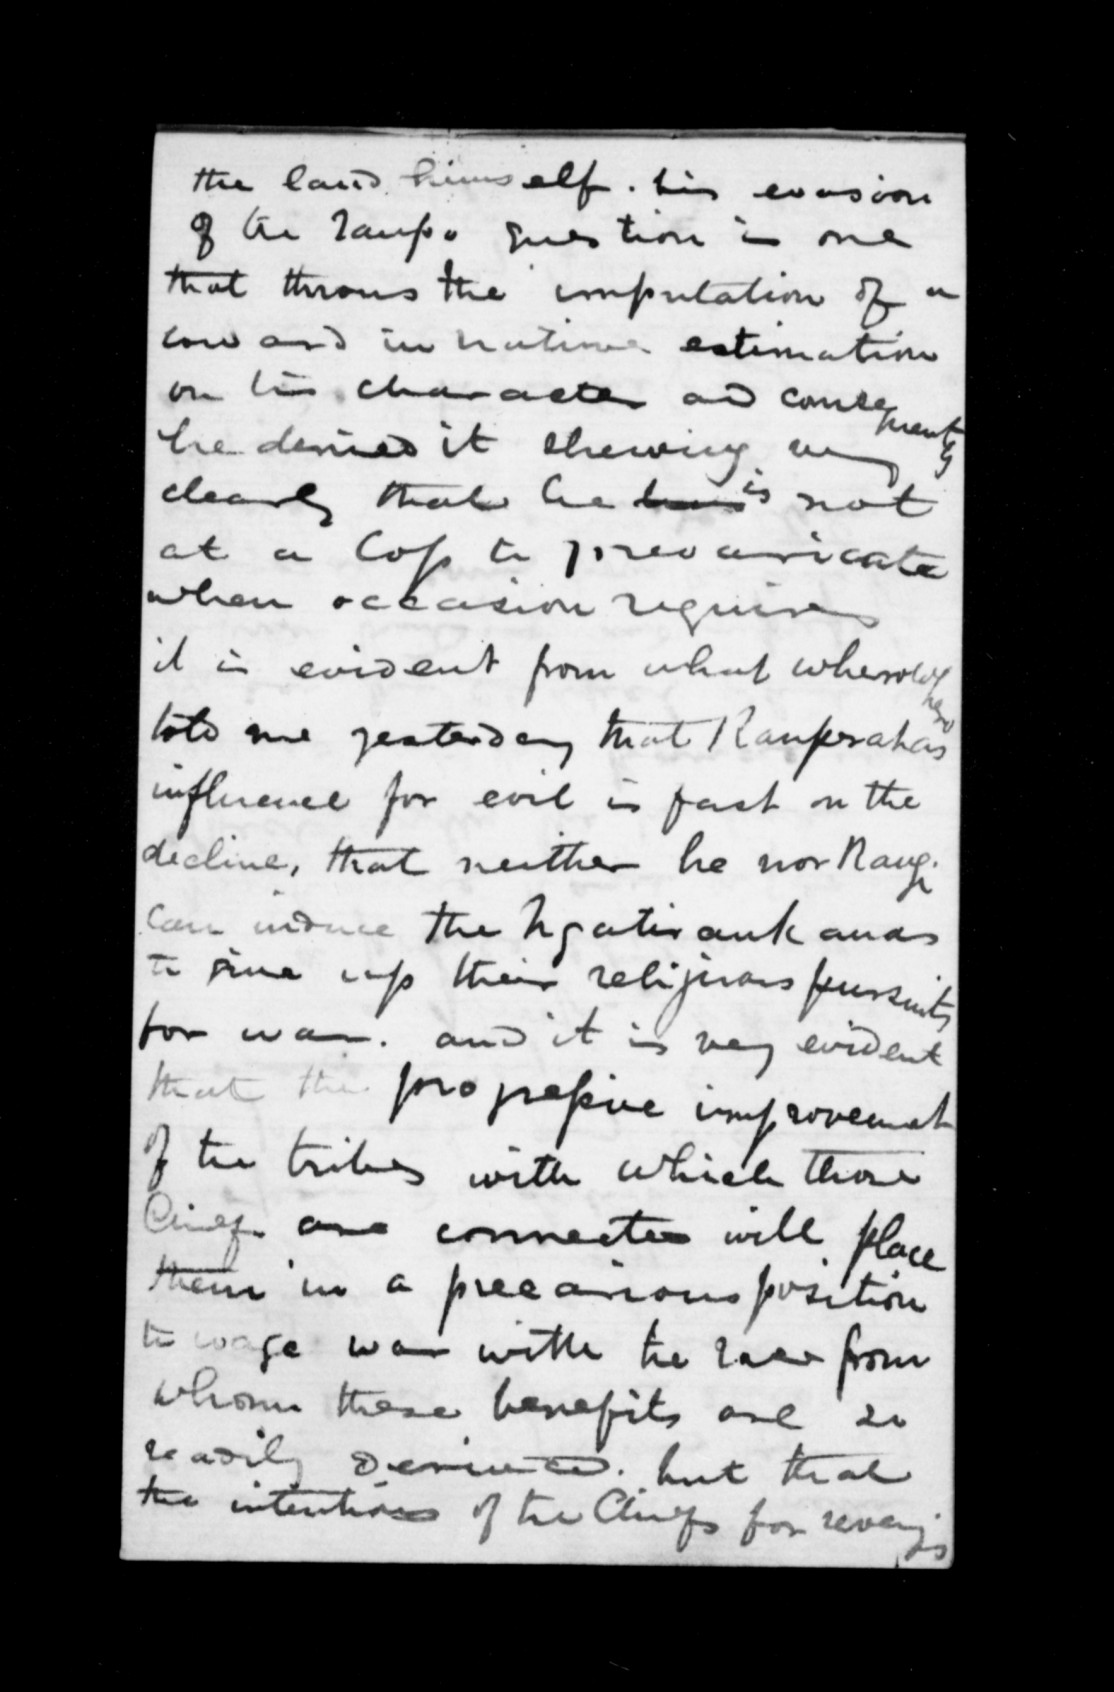 the land himself. his evasion
of the Raupo question is one
that throws the imputation of a
coward in native estimation
on his character and consequently
he denied it shewing very
clearly that he is not
at a loss to prevaricate
when occasion requires
it is evident from what
told me yesterday that Rauperahas
influence for evil is fast on the
decline, that neither he nor Rangi
can induce the Ngatiraukauas
to give up their religious pursuits
for war. and it is very evident
that the progressive improvement
of the tribes with which those
Chiefs are connected will place
them in a precarious position
to wage war with the race from
whom these benefits are so
readily derived. but that
the intentions of the Chiefs for revenge is